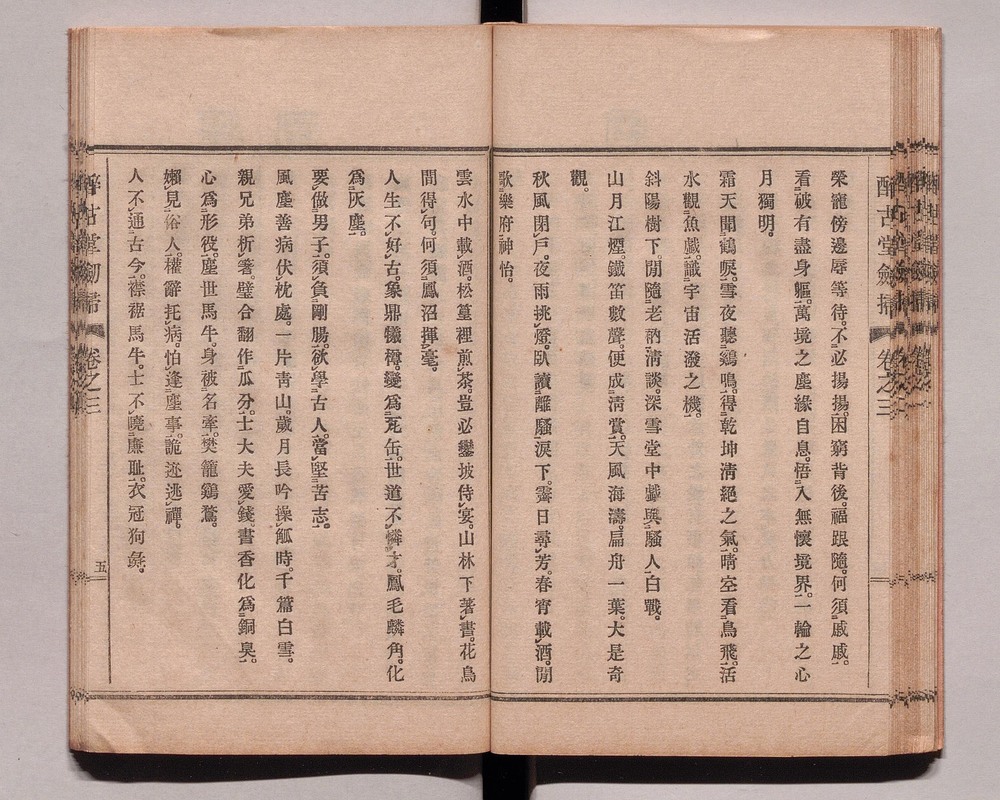 醉古堂劍掃 卷之三
榮寵傍邊辱等待。不必揚揚。困窮背後。福跟隨。何須戚戚。
看破有盡身軀。萬境之塵緣自息。悟入無懷境界。一輪之心
月獨明。
霜天聞鶴唳。雪夜聽鷄鳴。得乾坤淸絕之氣。晴空看鳥飛。活
水觀魚戲。識宇宙活潑之機。
斜陽樹下。閒隨老衲淸談。深雪堂中。戲與騷人白戰。
山月江煙。鐵笛數聲。便成淸賞。天風海濤。扁舟一葉。大是奇
觀。
秋風閉戶。夜雨挑燈。臥讀離騷淚下。霽日尋芳。春宵載酒。閒
歌樂府神怡。
雲水中載酒。松篁裡煎茶。豈必鑾坡侍宴。山林下著書。花鳥
間得句。何須鳳沼揮毫。
人生不好古。象鼎犧樽。變爲瓦缶。世道不憐才。鳳毛麟角。化
爲灰塵。
要做男子。須負剛腸。欲學古人。當堅苦志。
風塵善病。伏枕處。一片靑山。歲月長吟。操觚時。千篇白雪。
親兄弟析箸。璧合翻作瓜分。士大夫愛錢。書香化爲銅臭。
心爲形役。塵世馬牛。身被名牽。樊籠鷄鶩。
嬾見俗人。權辭托病。怕逢塵事。詭迹逃禪。
人不通古今。襟裾馬牛。士不曉廉耻。衣冠狗彘。
醉古堂劍掃 卷之三
五